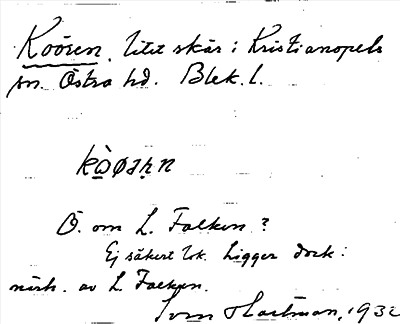 Koören, litet skär i Kristianopels
sn. Östra hd. Blek. l.
kò̱øɹḥn
Ö. om L. Falken?
Ej säkert lok. Ligger dock i
närh. av L. Falken.
Sven Hartman, 1932